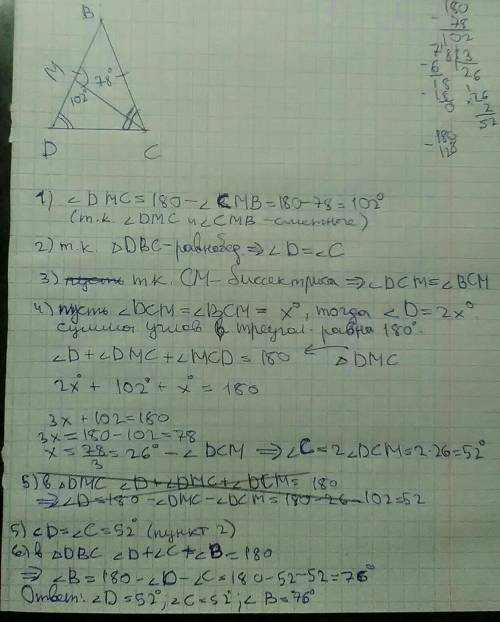 B
M
78°
102°
D
C
180
- 78
102
78 | 3
- 6
26
18
- 18
0
26
2
52
- 180
128
1) ∠DMC = 180 - ∠CMB = 180 - 78 = 102°
(т.к. ∠DMC и ∠CMB - смежные)
2) т.к. △DBC - равнобед ⇒ ∠D = ∠C
3) пусть т.к. CM - биссектриса ⇒ ∠DCM = ∠BCM
4) пусть ∠DCM = ∠BCM = x°, тогда ∠D = 2x°.
сумма углов в треугол. равна 180°.
∠D + ∠DMC + ∠MCD = 180 ← △DMC
2x° + 102° + x° = 180
3x + 102 = 180
3x = 180 - 102 = 78
x = 78/3 = 26° - ∠DCM ⇒ ∠C = 2∠DCM = 2·26 = 52°
5) в △DMC ∠D + ∠DMC + ∠DCM = 180
⇒ ∠D = 180 - ∠DMC - ∠DCM = 180 - 26 - 102 = 52
5) ∠D = ∠C = 52° (пункт 2)
6) в △DBC ∠D + ∠C + ∠B = 180
⇒ ∠B = 180 - ∠D - ∠C = 180 - 52 - 52 = 76°
Ответ: ∠D = 52°; ∠C = 52°; ∠B = 76°